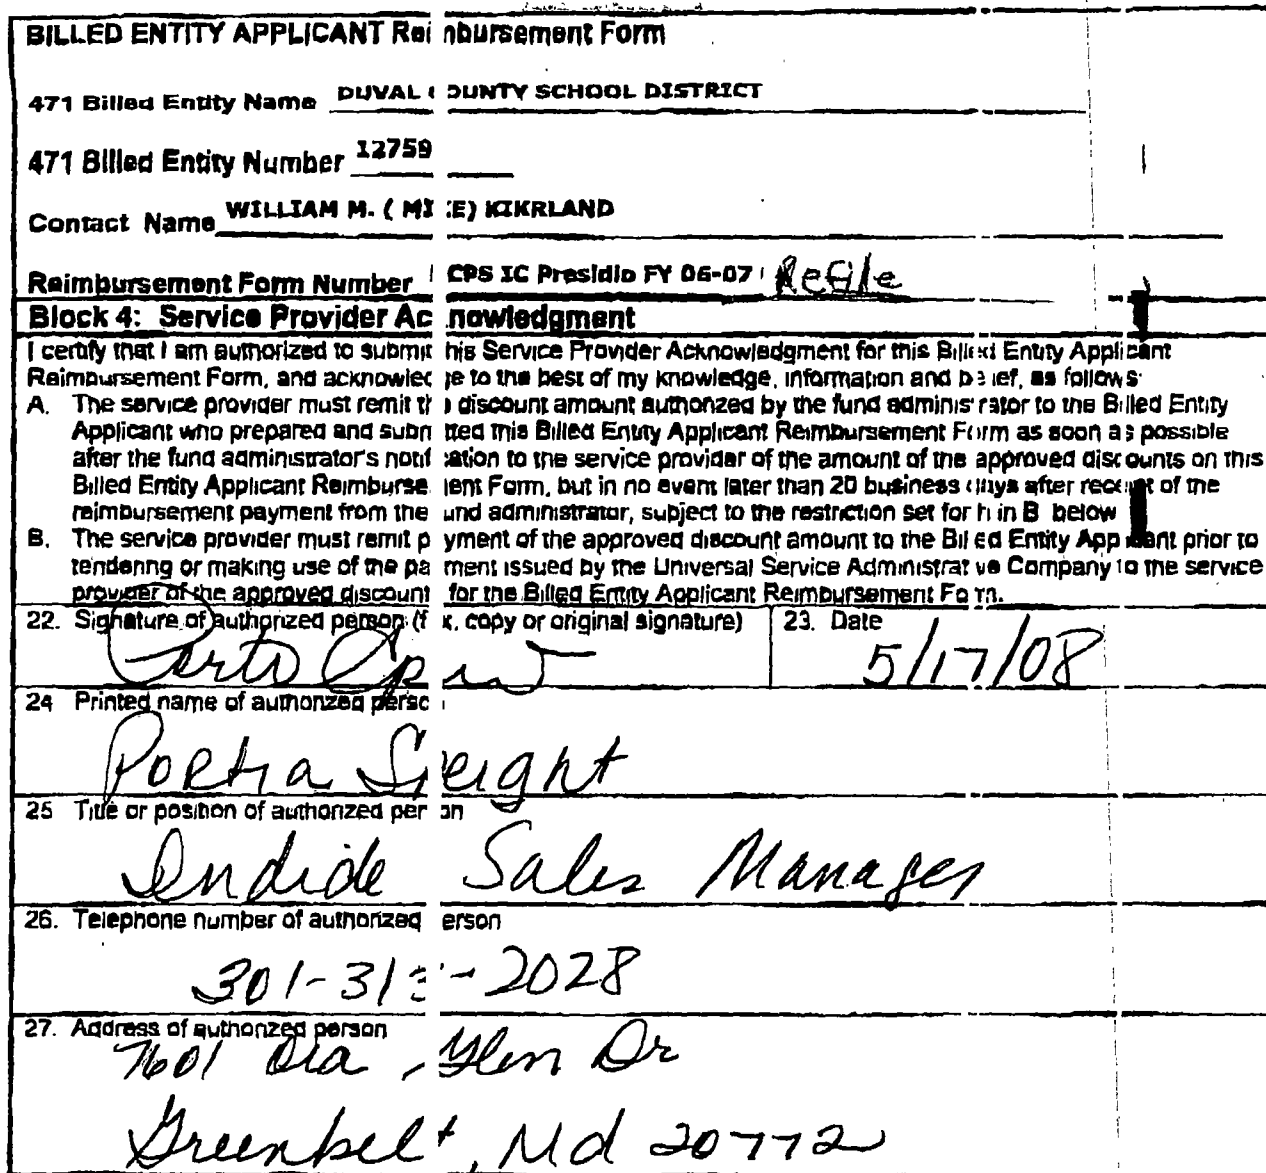 BILLED ENTITY APPLICANT Rei nbursement Form
471 Billed Entity Name DUVAL OUNTY SCHOOL DISTRICT
471 Billed Entity Number 12759
Contact Name WILLIAM M. ( MI KE) KIKRLAND
Reimbursement Form Number CPS IC Presidio FY 06-07 Refile
Block 4: Service Provider Ac nowledgment
I certify that I am authorized to submit his Service Provider Acknowledgment for this Billed Entity Applicant
Reimbursement Form, and acknowled ge to the best of my knowledge, information and belief, as follows:
A. The service provider must remit th discount amount authorized by the fund administrator to the Billed Entity
Applicant who prepared and subm tted this Billed Entity Applicant Reimbursement Form as soon as possible
after the fund administrator's notif cation to the service provider of the amount of the approved discounts on this
Billed Entity Applicant Reimburse ent Form, but in no event later than 20 business days after receipt of the
reimbursement payment from the und administrator, subject to the restriction set forth in B below
B. The service provider must remit p yment of the approved discount amount to the Billed Entity Applicant prior to
tendering or making use of the pa ment issued by the Universal Service Administrative Company to the service
provider of the approved discount for the Billed Entity Applicant Reimbursement Form.
22. Signature of authorized person (f x, copy or original signature) 23. Date
5/17/08
24 Printed name of authorized perso
Portia Speight
25 Title or position of authorized per on
Indide Sales Manager
26. Telephone number of authorized erson
301-313-2028
27. Address of authorized person
7601 Ora Glen Dr
Greenbelt, Md 20772